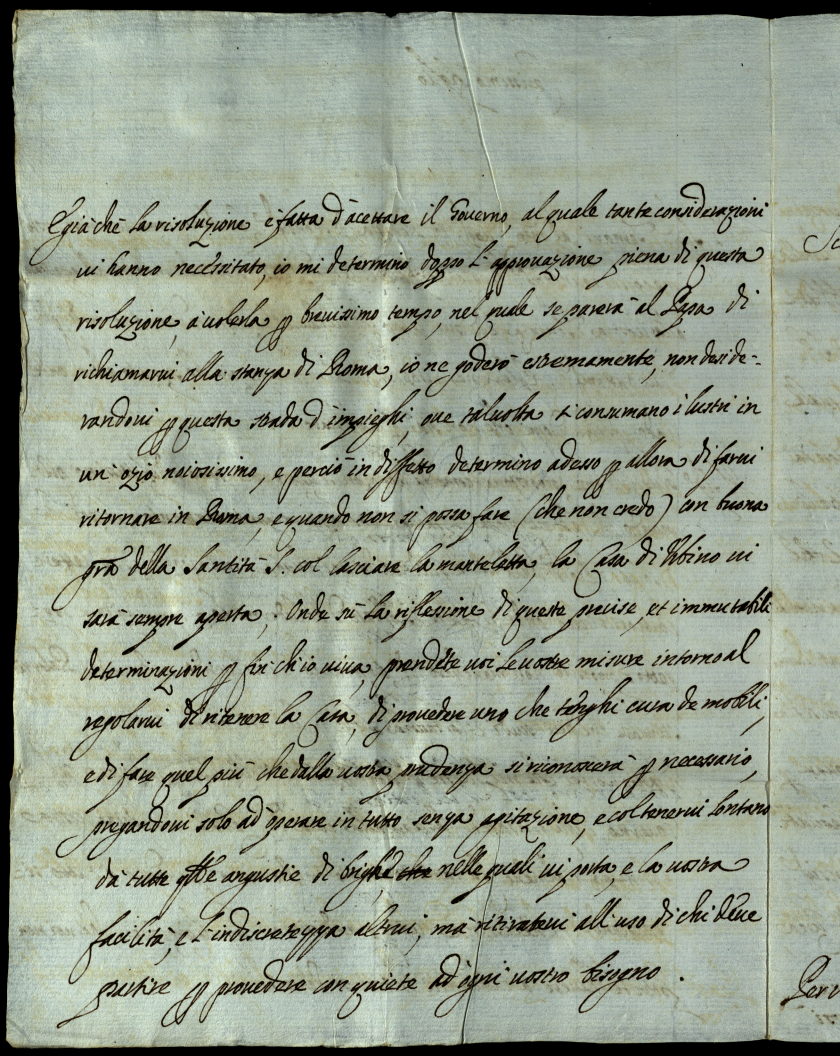 E già che la risoluzione è fatta d'acettare il Governo, al quale tante considerazioni
vi hanno necessitato, io mi determino doppo l'approvazione piena di questa
risoluzione, à volerla p brevissimo tempo, nel quale se parerà al Papa di
richiamarvi alla stanza di Roma, io ne goderò estremamente, non deside-
randovi p questa strada d'impieghi, ove talvolta si consumano i lustri in
un' ozio noiosissimo, e perciò in difetto determino adesso p allora di farvi
ritornare in Roma, e quando non si possa fare (che non credo) con buona
gra della Santità S. col lasciare la manteletta, la Casa di Urbino vi
sarà sempre aperta; Onde sù la riflessione di queste precise, et immutabili
determinazioni p fin ch'io viva, prendete voi le vostre misure intorno al
regolarvi di ritenere la Casa, di provedere uno che tenghi cura de mobili,
e di fare quel più che dalla vostra prudenza si riconoscerà p necessario,
pregandovi solo ad operare in tutto senza agitazione, e col tenervi lontano
da tutte qlle angustie di brighe nelle quali vi porta, e la vostra
facilità, e l'indiscretezza altrui, mà ritiratevi all'uso di chi deve
partire p provedere con quiete ad ogni vostro bisogno.